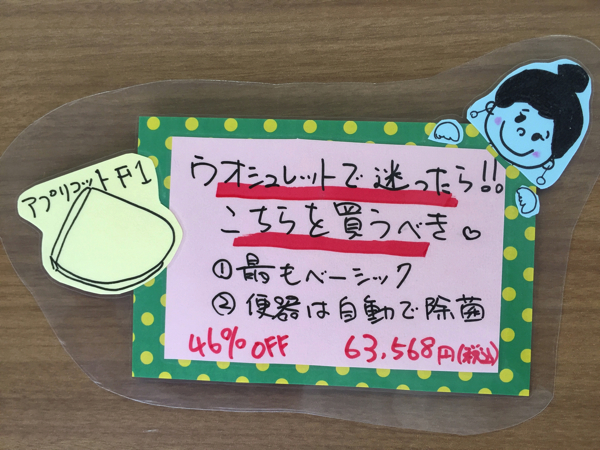 アプリコット F1
ウオシュレットで迷ったら!!
こちらを買うべき♡
①最もベーシック
②便器は自動で除菌
46%OFF 63,568円(税込)